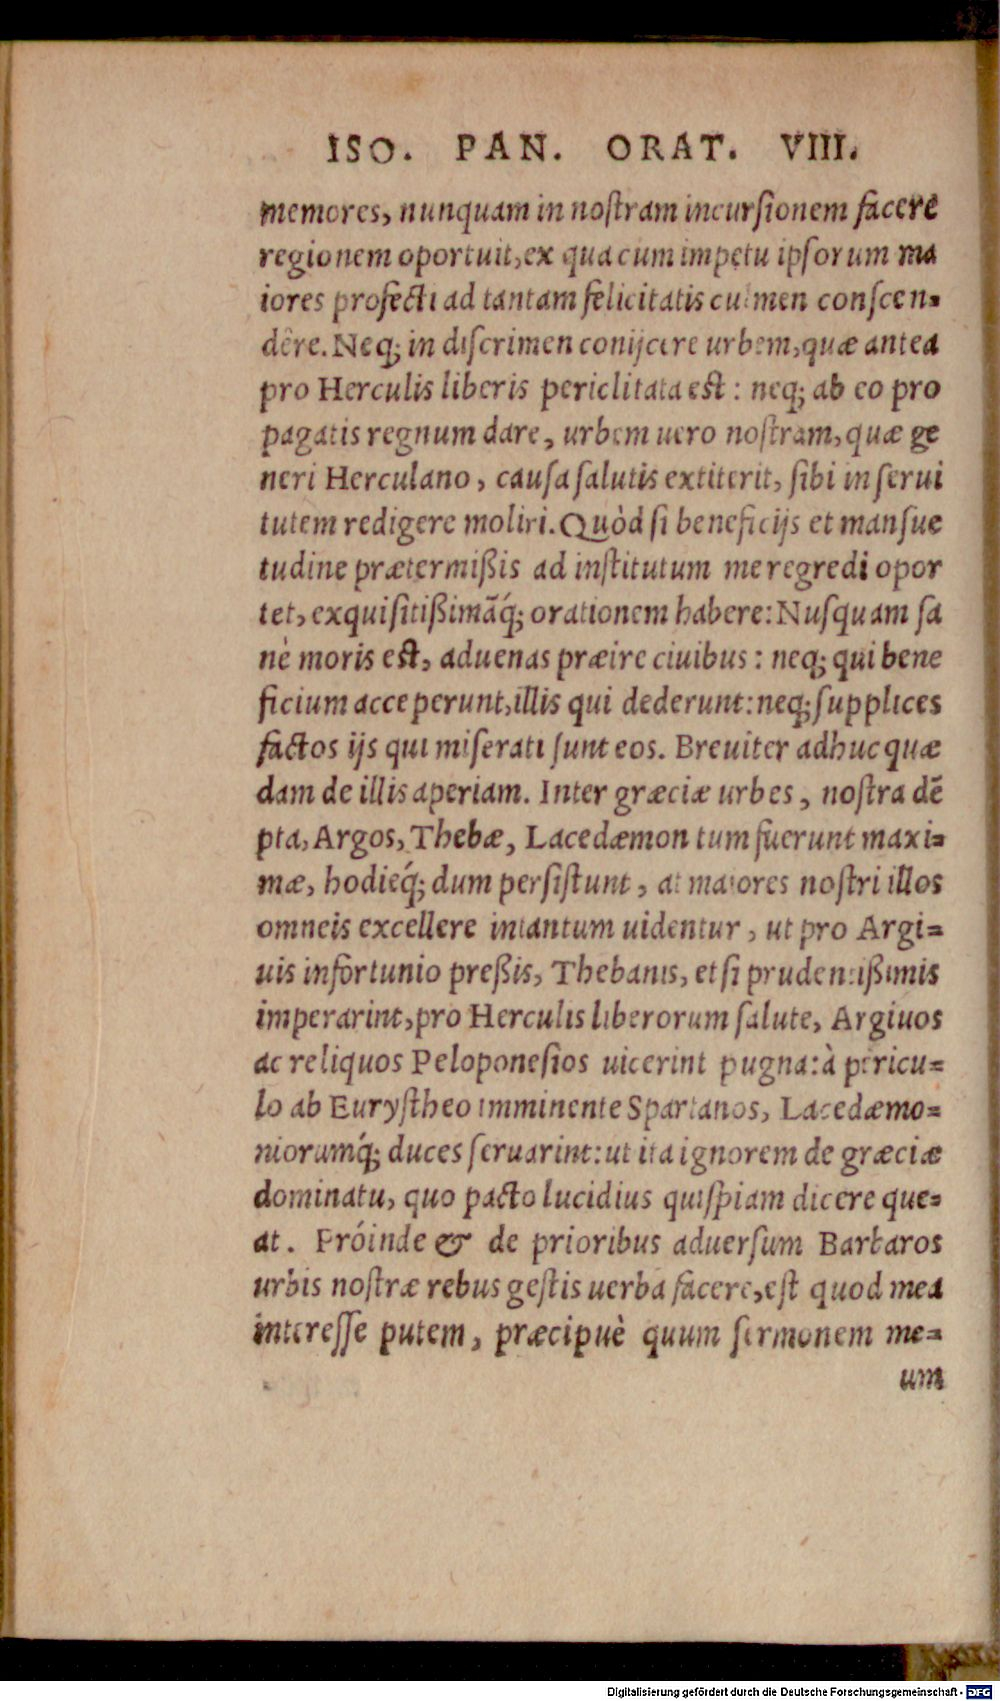 ISO. PAN. ORAT. VIII.
memores, nunquam in noſtram incurſionem facere
regionem oportuit, ex qua cum impetu ipſorum ma
iores profecti ad tantam felicitatis culmen conſcen=
dêre. Neq; in diſcrimen conijcere urbem, quæ antea
pro Herculis liberis periclitata est: neq; ab eo pro
pagatis regnum dare, urbem uero noſtram, quæ ge
neri Herculano, cauſa ſalutis extiterit, ſibi in ſerui
tutem redigere moliri. Quòd ſi beneficijs et manſue
tudine prætermißis ad inſtitutum me regredi opor
tet, exquiſitißimāq́; orationem habere: Nuſquam ſa
nè moris est, aduenas præire ciuibus: neq; qui bene
ficium acceperunt, illis qui dederunt: neq; ſupplices
factos ijs qui miſerati ſunt eos. Breuiter adhuc quæ
dam de illis aperiam. Inter græciæ urbes, noſtra dē
pta, Argos, Thebæ, Lacedæmon tum fuerunt maxi=
mæ, hodieq́; dum perſiſtunt, at maiores noſtri illos
omneis excellere intantum uidentur, ut pro Argi=
uis infortunio preßis, Thebanis, et ſi prudentißimis
imperarint, pro Herculis liberorum ſalute, Argiuos
ac reliquos Peloponeſios uicerint pugna: à pericu=
lo ab Euryſtheo imminente Spartanos, Lacedæmo=
niorumq́; duces ſeruarint: ut ita ignorem de græciæ
dominatu, quo pacto lucidius quiſpiam dicere que=
at. Próinde & de prioribus aduerſum Barbaros
urbis noſtræ rebus geſtis uerba facere, eſt quod mea
intereſſe putem, præcipuè quum ſermonem me=
um
Digitalisierung gefördert durch die Deutsche Forschungsgemeinschaft - DFG